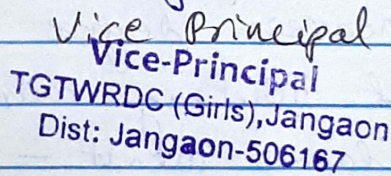 Vice Principal
Vice-Principal
TGTWRDC (Girls), Jangaon
Dist: Jangaon-506167